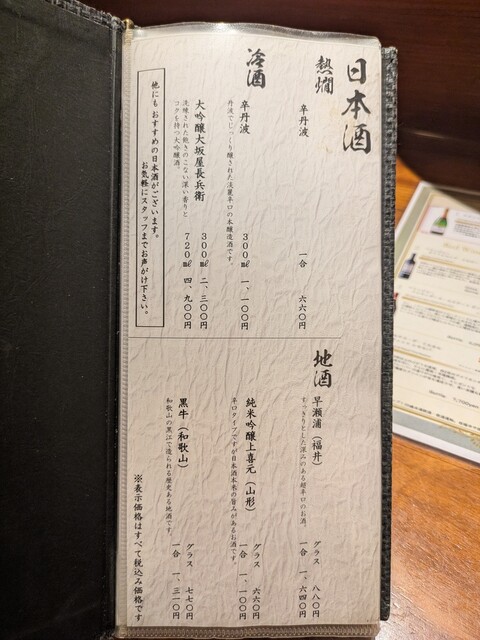 日本酒
熱燗
辛丹波
一合 六六〇円
冷酒
辛丹波
丹波でじっくり醸された淡麗辛口の本醸造酒です。
300㎖ 一、一〇〇円
大吟醸大坂屋長兵衛
洗練された飽きのこない深い香りと
コクを持つ大吟醸酒。
300㎖ 二、三〇〇円
720㎖ 四、九〇〇円
他にもおすすめの日本酒がございます。
お気軽にスタッフまでお声がけ下さい。
地酒
早瀬浦（福井）
すっきりとした深みのある超辛口のお酒。
グラス 八八〇円
一合 一、六四〇円
純米吟醸上喜元（山形）
辛口タイプですが日本酒本来の旨みがあるお酒です。
グラス 六六〇円
一合 一、一〇〇円
黒牛（和歌山）
和歌山の黒江で造られる歴史ある地酒です。
グラス 七七〇円
一合 一、三一〇円
※表示価格はすべて税込み価格です